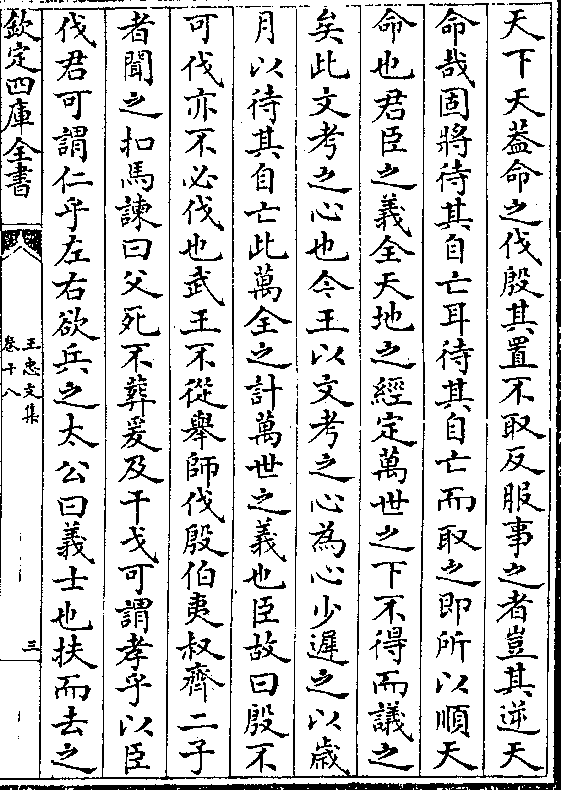 天下天葢命之伐殷其置不取反服事之者豈其逆天
命哉固將待其自亡耳待其自亡而取之即所以順天
命也君臣之義全天地之經定萬世之下不得而議之
矣此文考之心也今王以文考之心為心少遲之以歲
月以待其自亡此萬全之計萬世之義也臣故曰殷不
可伐亦不必伐也武王不從舉師伐殷伯夷叔齊二子
者聞之扣馬諫曰父死不葬爰及干戈可謂孝乎以臣
伐君可謂仁乎左右欲兵之太公曰義士也扶而去之
欽定四庫全書
王忠文集
卷十八
三